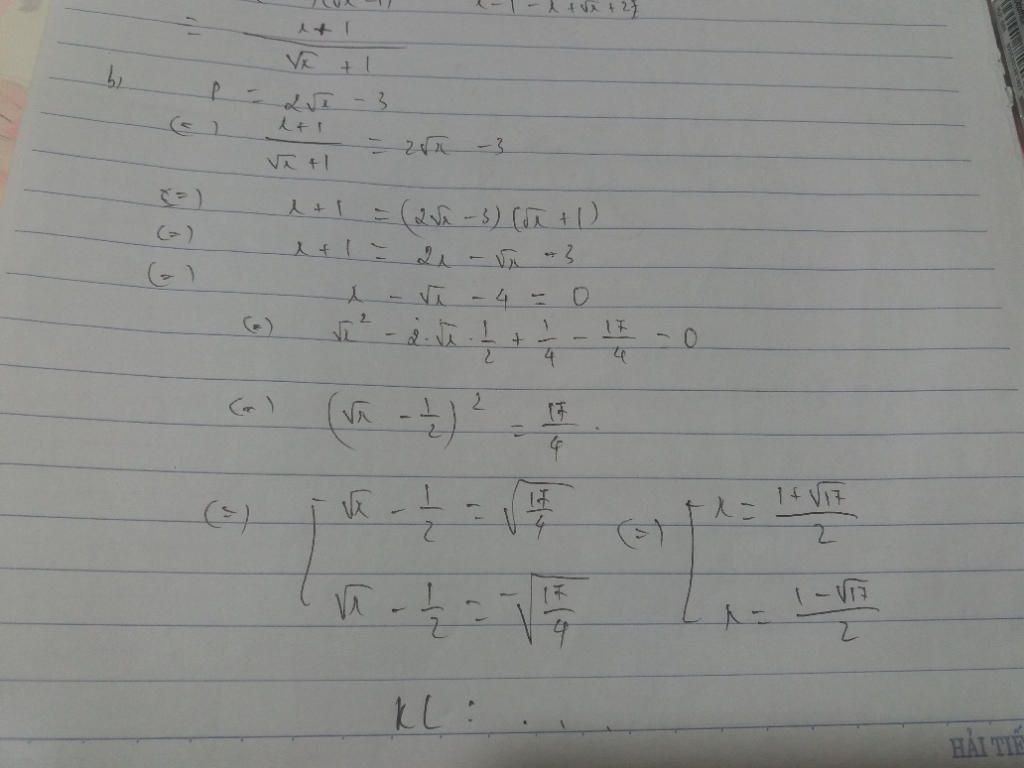 x - 1 - x + √x + 2
= (x + 1)/(√x + 1)
b, P = 2√x - 3
(=) (x+1)/(√x+1) = 2√x - 3
(=) x + 1 = (2√x - 3)(√x + 1)
(=) x + 1 = 2x - √x - 3
(=) x - √x - 4 = 0
(=) √x² - 2·√x·1/2 + 1/4 - 17/4 = 0
(=) (√x - 1/2)² = 17/4.
(=) [ √x - 1/2 = √(17/4) (=) [ x = (1+√17)/2
√x - 1/2 = -√(17/4) x = (1-√17)/2
KL : . . .
HẢI TIẾ